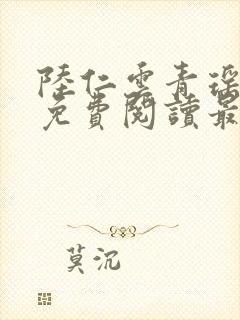 陸仁雲青瑤
免費閱讀最
莫沉